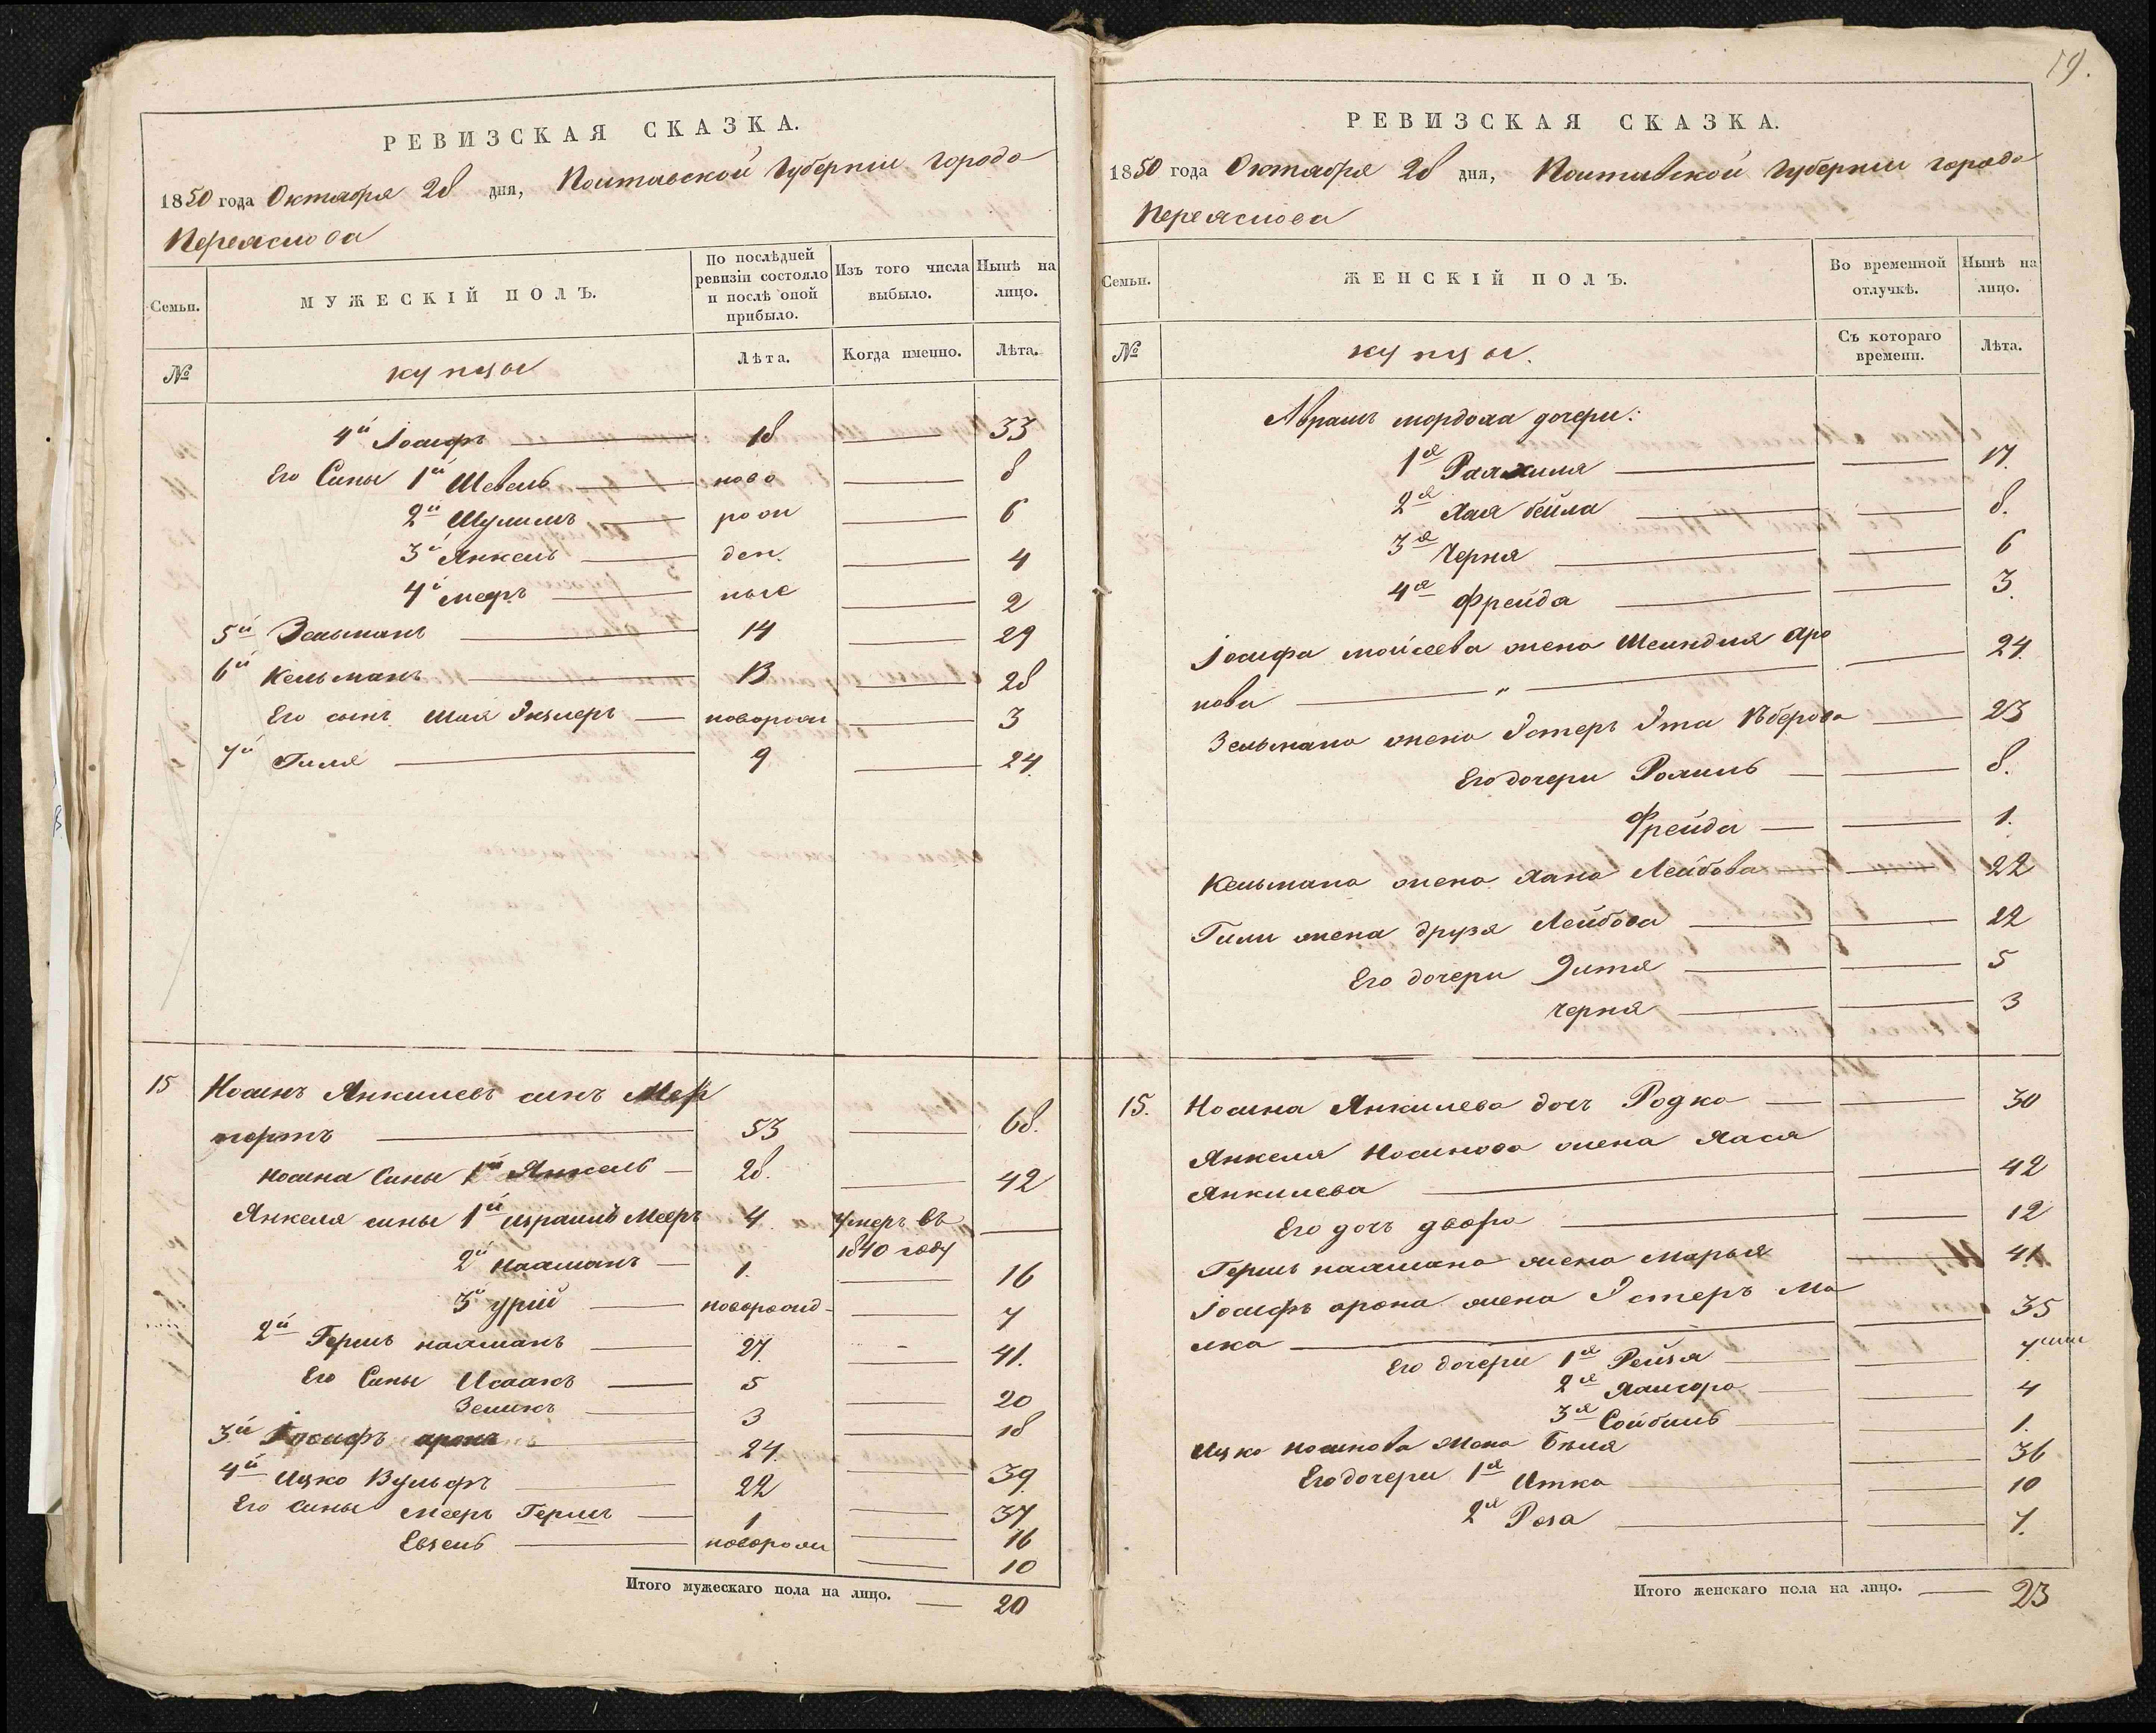 19.
РЕВИЗСКАЯ СКАЗКА.
1850 года Октября 28 дня, Полтавской Губернии города
Переяслова
Семьи.
МУЖЕСКІЙ ПОЛЪ.
По послѣдней ревизіи состояло и послѣ оной прибыло.
Изъ того числа выбыло.
Нынѣ на лицо.
№
купцы
Лѣта.
Когда именно.
Лѣта.
4й Іосифъ 18 33
Его Сины 1й Шевель ново 8
2й Шулимъ рож 6
3й Янкель ден 4
4й Меєръ ные 2
5й Зельманъ 14 29
6й Кельманъ 13 28
Его сынъ Шая новорож 3
7й Гиля 9 24
15 Носинъ Янкилевъ синъ
53 68.
Носина Сины 1й Янкель 28. 42
Янкеля сины 1й Израиль Мееръ 4 Умеръ въ
1840 году
2й Нахманъ 1. 16
3й Урій новорожд 7
2й Гершъ Нахманъ 27. 41.
Его Сины Исаакъ 5 20
Зеликъ 3 18
3й Іосифъ Аронъ 24. 39
4й Ицко Вульфъ 22 37
Его сины Мееръ Гершъ 1 16
Евзель новорож 10
Итого мужескаго пола на лицо. 20
РЕВИЗСКАЯ СКАЗКА.
1850 года Октября 28 дня, Полтавской Губернии города
Переяслова
Семьи.
ЖЕНСКІЙ ПОЛЪ.
Во временной отлучкѣ.
Нынѣ на лицо.
№
купцы.
Съ котораго времени.
Лѣта.
Абрамъ Мордоха дочери:
1я Рахиля 17.
2я Хая Бейла 8.
3я Черня 6
4я Фрейда 3.
Іосифа Мойсеева жена Шейндля Аро
нова 24.
Зельмана жена Эстеръ Эта 23
Его дочери Рохиль 8.
Фрейда 1.
Кельмана жена Хана Лейбова 22
Гили жена Друзя Лейбова 22
Его дочери 5
Черня 3
15. Носина Янкилева дочь Родка 30
Янкеля Носинова жена Хася
Янкилева 42
Его дочь Двора 12
Гершъ Нахмана жена Марья 41
Іосифъ Арона жена Эстеръ Ма
лка 35
Его дочери 1я Рейзя 7
2я 4
3я Сойбиль 1.
Ицко Носинова жена Бѣля 36
Его дочери 1я Итка 10
2я Роза 7.
Итого женскаго пола на лицо. 23